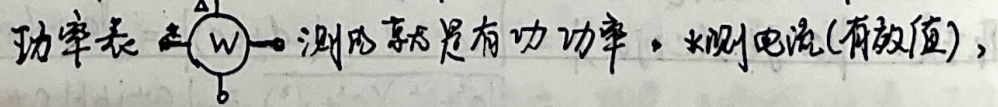 功率表 W 测的就是有功功率。测电流(有效值),